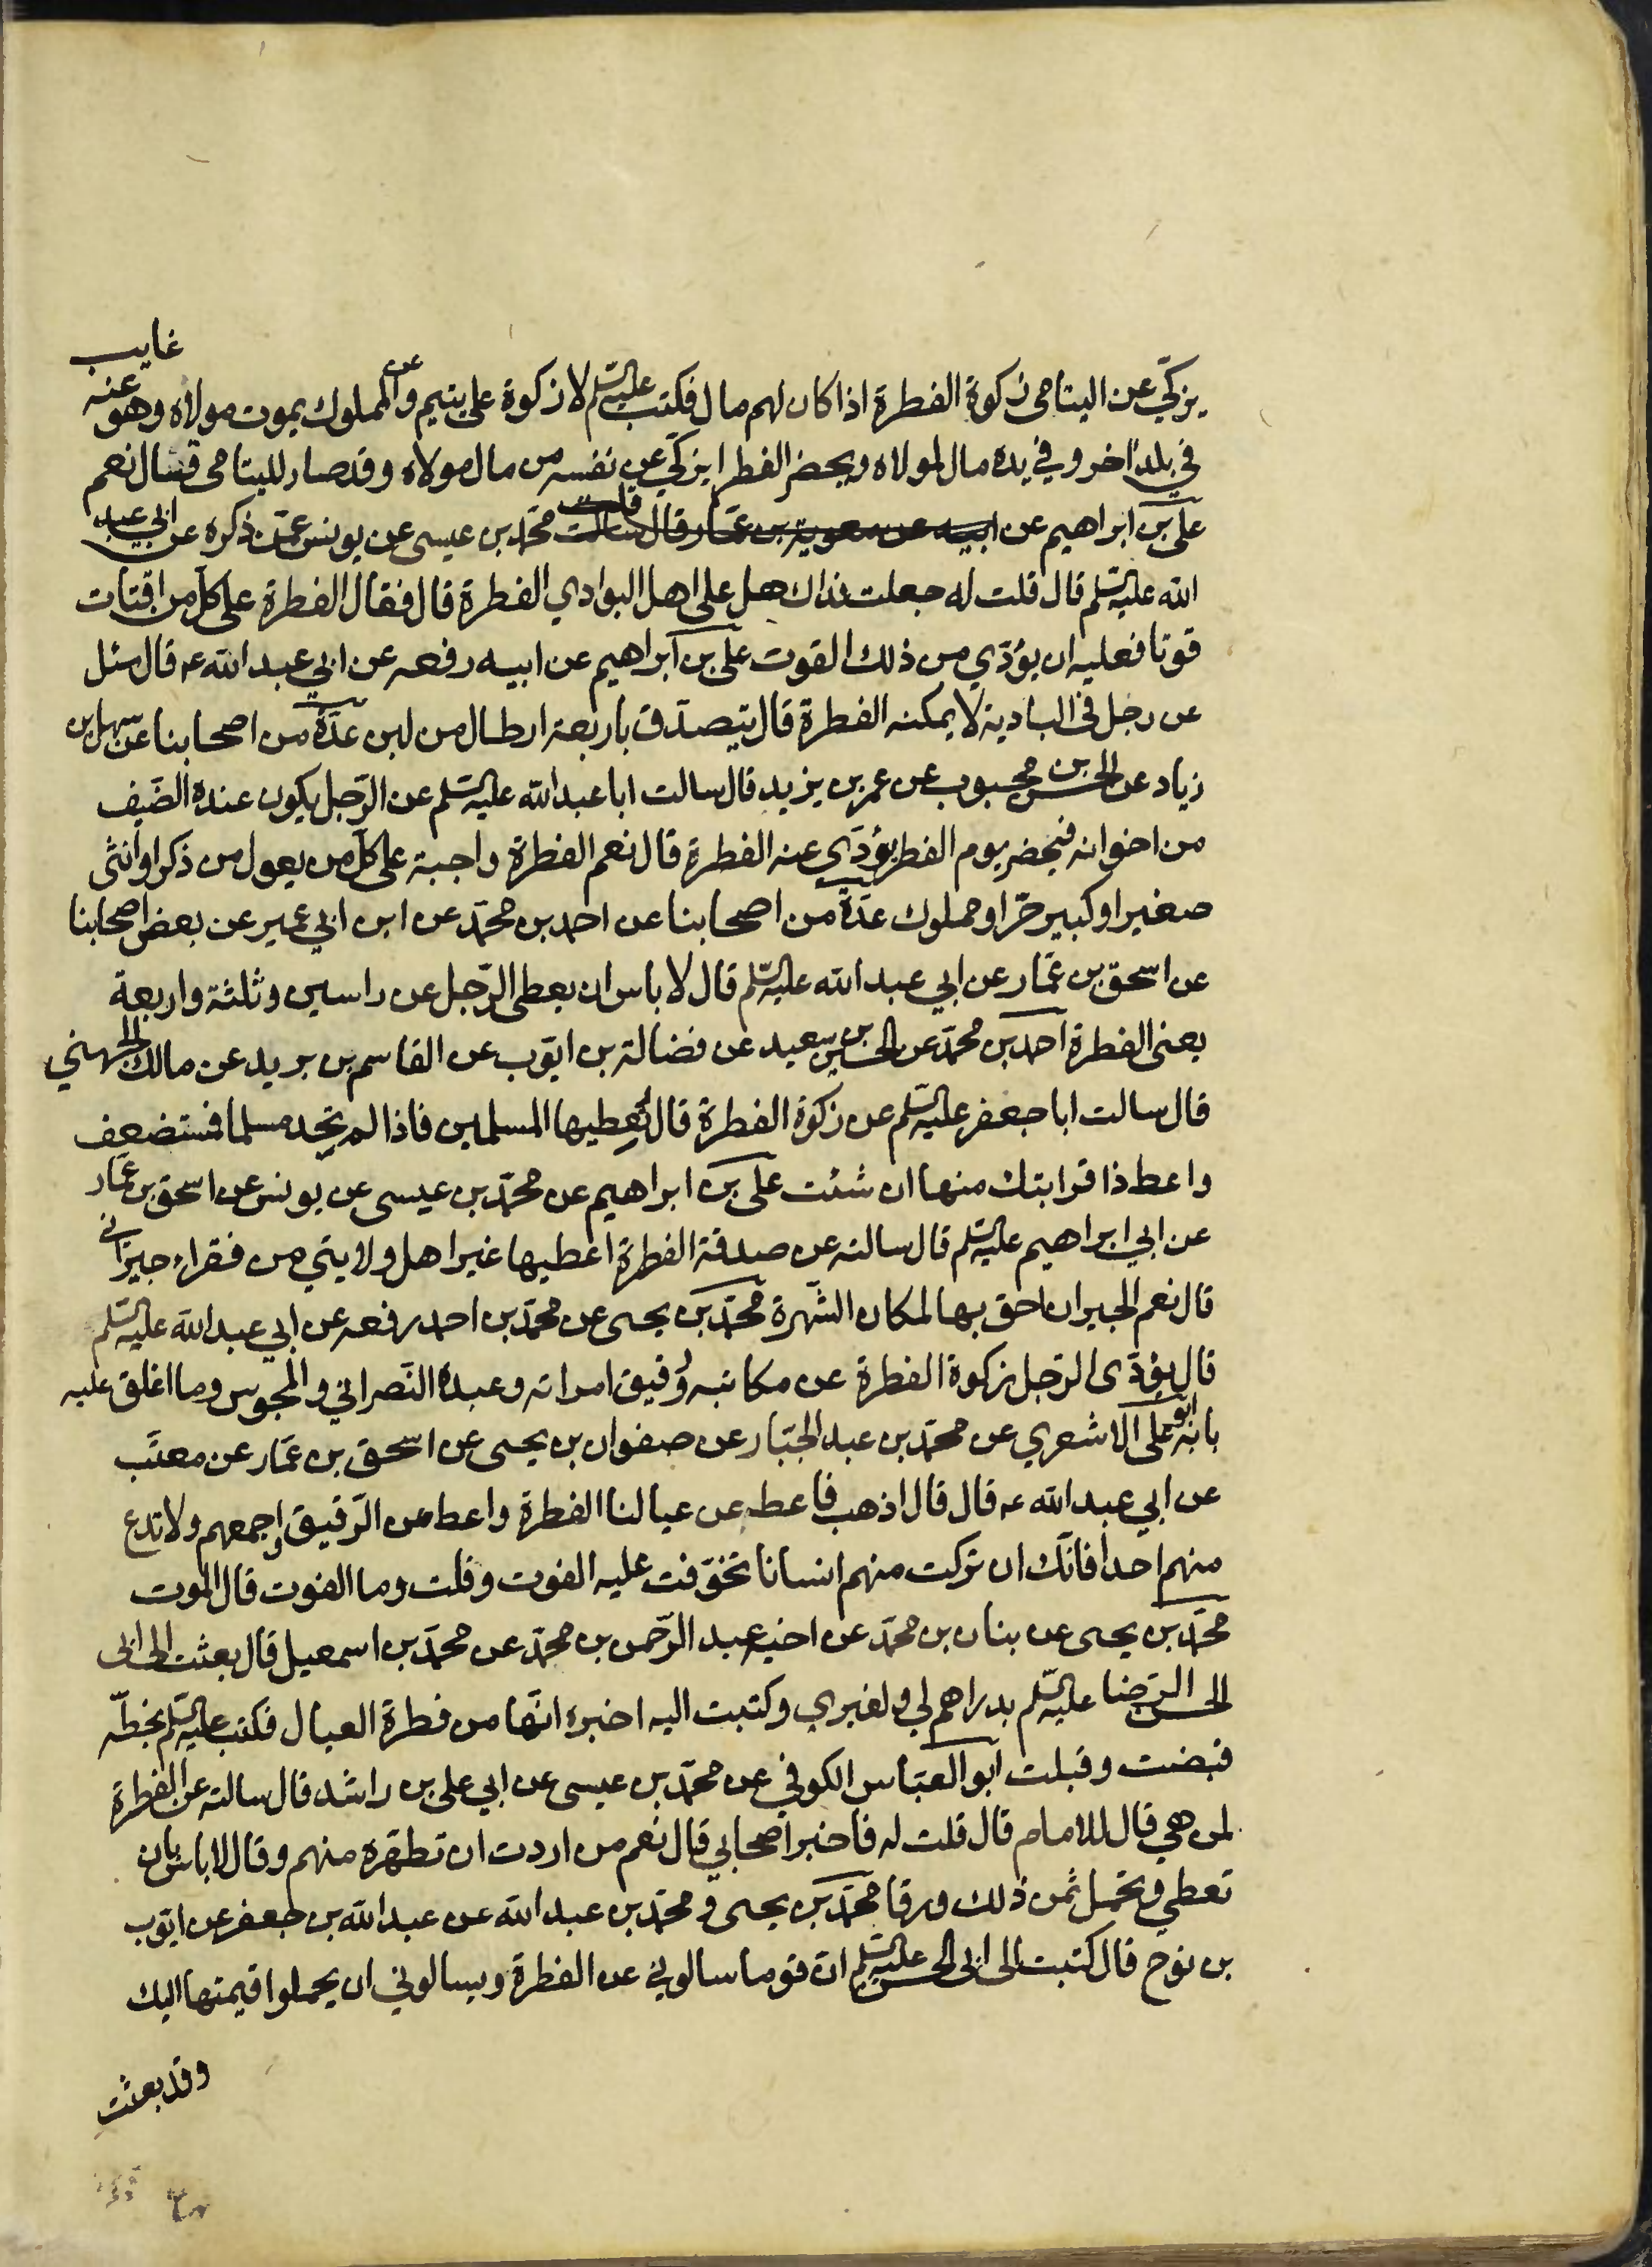 يزكّي عن اليتامى زكوة الفطرة اذا كان لهم مال فكتب عليه السّلم لا زكوة على يتيم وعن المملوك يموت مولاه وهو عنه غايب
في بلد اخر وفي يده مال لمولاه ويحضر الفطر ايزكّي عن نفسه من مال مولاه وقد صار لليتامى قال نعم
علي بن ابراهيم عن ابيه عن معوية بن عمّار قال سالت محمّد بن عيسى عن يونس عمّن ذكره عن ابي عبد
الله عليه السّلم قال قلت له جعلت فداك هل على اهل البوادي الفطرة قال فقال الفطرة على كلّ من اقتات
قوتا فعليه ان يؤدّي من ذلك القوت علي بن ابراهيم عن ابيه رفعه عن ابي عبد الله ع قال سئل
عن رجل في البادية لا يمكنه الفطرة قال يتصدّق باربعة ارطال من لبن عدّة من اصحابنا عن سهل بن
زياد عن الحسن بن محبوب عن عمر بن يزيد قال سالت ابا عبد الله عليه السّلم عن الرّجل يكون عنده الضّيف
من اخوانه فيحضر يوم الفطر يؤدّي عنه الفطرة قال نعم الفطرة واجبة على كلّ من يعول من ذكر او انثى
صغير او كبير حرّ او مملوك عدّة من اصحابنا عن احمد بن محمّد عن ابن ابي عمير عن بعض اصحابنا
عن اسحق بن عمّار عن ابي عبد الله عليه السّلم قال لا باس ان يعطي الرّجل عن راسين وثلثة واربعة
يعنى الفطرة احمد بن محمّد عن الحسين بن سعيد عن فضالة بن ايّوب عن القاسم بن بريد عن مالك الجهني
قال سالت ابا جعفر عليه السّلم عن زكوة الفطرة قال تعطيها المسلمين فاذا لم تجد مسلما فمستضعف
واعط ذا قرابتك منها ان شئت علي بن ابراهيم عن محمّد بن عيسى عن يونس عن اسحق بن عمّار
عن ابي ابراهيم عليه السّلم قال سالته عن صدقة الفطرة اعطيها غير اهل ولايتي من فقراء جيراني
قال نعم الجيران احق بها لمكان الشّهرة محمّد بن يحيى عن محمّد بن احمد رفعه عن ابي عبد الله عليه السّلم
قال يؤدّى الرّجل زكوة الفطرة عن مكاتبه ورقيق امراته وعبده النّصراني والمجوس وما اغلق عليه
بابه ابو علي الاشعري عن محمّد بن عبد الجبّار عن صفوان بن يحيى عن اسحق بن عمّار عن معتّب
عن ابي عبد الله ع قال قال اذهب فاعط عن عيالنا الفطرة واعط عن الرّقيق واجمعهم ولا تدع
منهم احدا فانّك ان تركت منهم انسانا تخوّفت عليه الفوت وقلت وما الفوت قال الموت
محمّد بن يحيى عن بنان بن محمّد عن اخيه عبد الرّحمن بن محمّد عن محمّد بن اسمعيل قال بعثت الى ابى
الحسن الرّضا عليه السّلم بدراهم لي ولغيري وكتبت اليه اخبره انّها من فطرة العيال فكتب عليه السّلم بخطّه
قبضت وقبلت ابو العبّاس الكوفي عن محمّد بن عيسى عن ابي علي بن راشد قال سالته عن الفطرة
لمن هي قال للامام قال قلت له فاخبر اصحابي قال نعم من اردت ان تطهّره منهم وقال لا باس بان
تعطي وتحمل ثمن ذلك ورقا محمّد بن يحيى ومحمّد بن عبد الله عن عبد الله بن جعفر عن ايّوب
بن نوح قال كتبت الى ابى الحسن عليه السّلم ان قوما سالوني عن الفطرة ويسالوني ان يحملوا قيمتها اليك
وقد بعثت